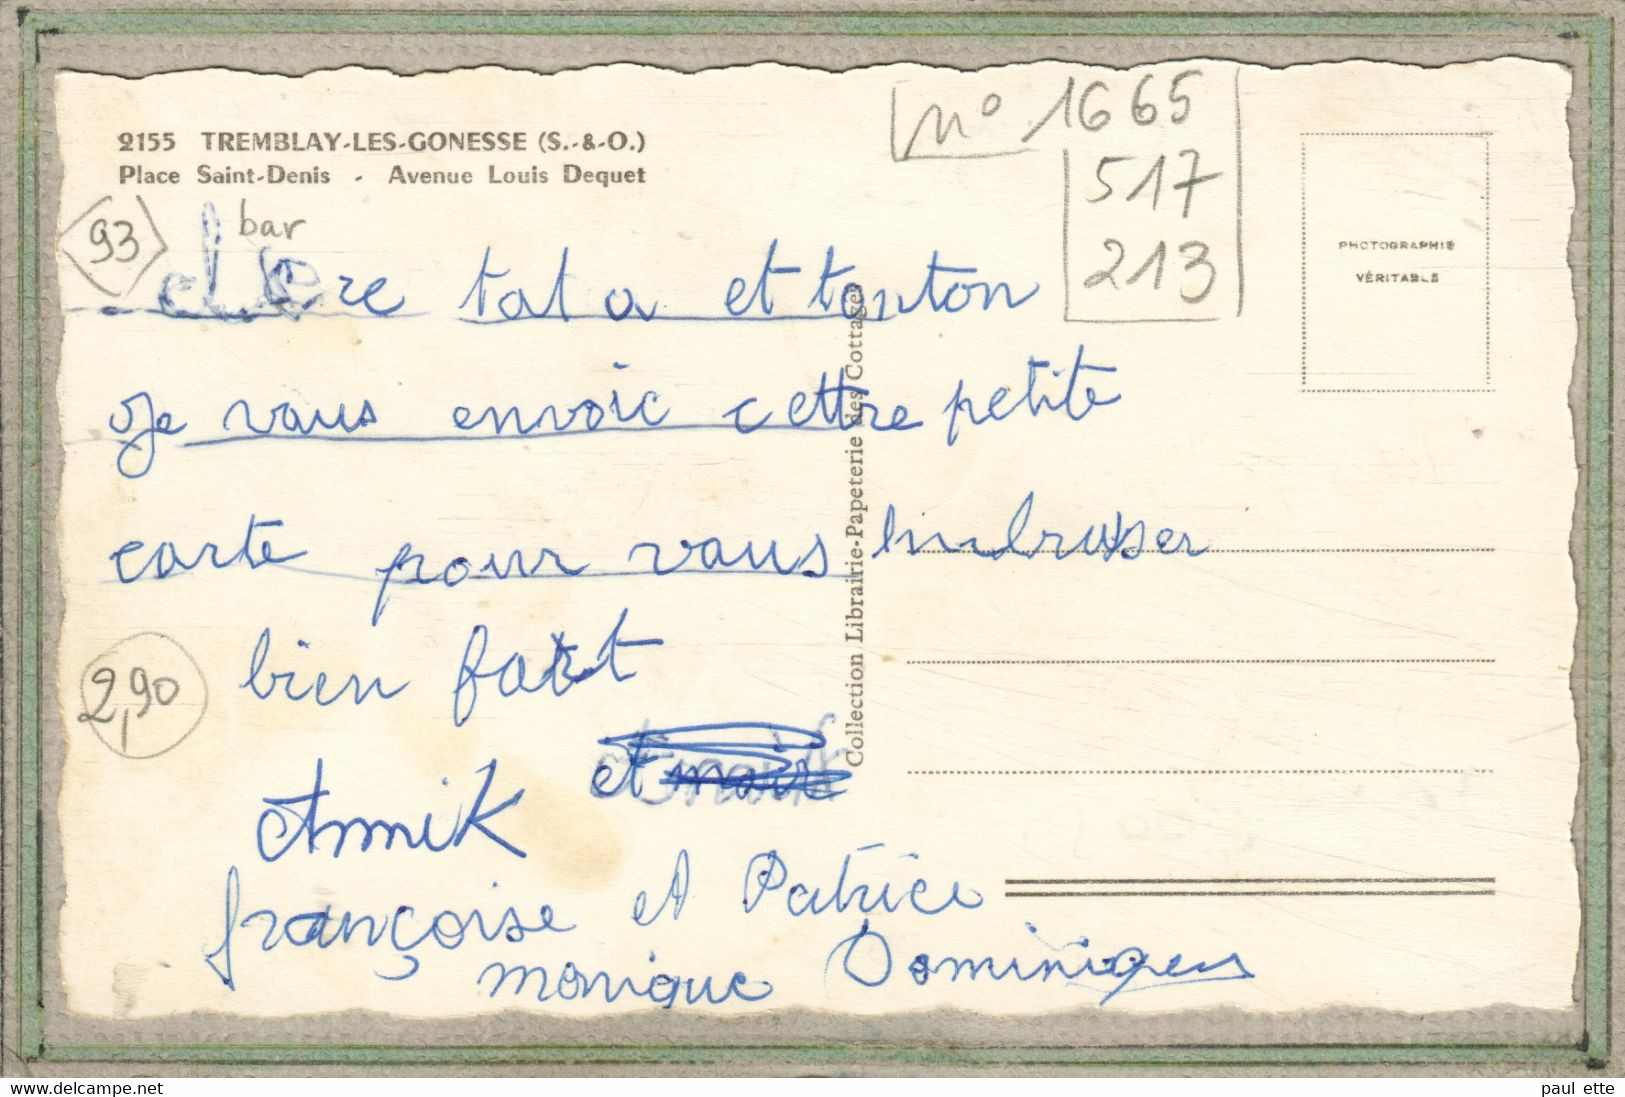 2155 TREMBLAY-LES-GONESSE (S.-&-O.)
Place Saint-Denis - Avenue Louis Dequet
n° 1665
517
213
93
bar
PHOTOGRAPHIE
VÉRITABLE
chere tata et tonton
Je vous envoie cettre petite
carte pour vous embrasser
bien fort
2,90
et
Annik
françoise et Patrice
monique Dominique
Collection Librairie-Papeterie des Cottages
www.delcampe.net
paul ette